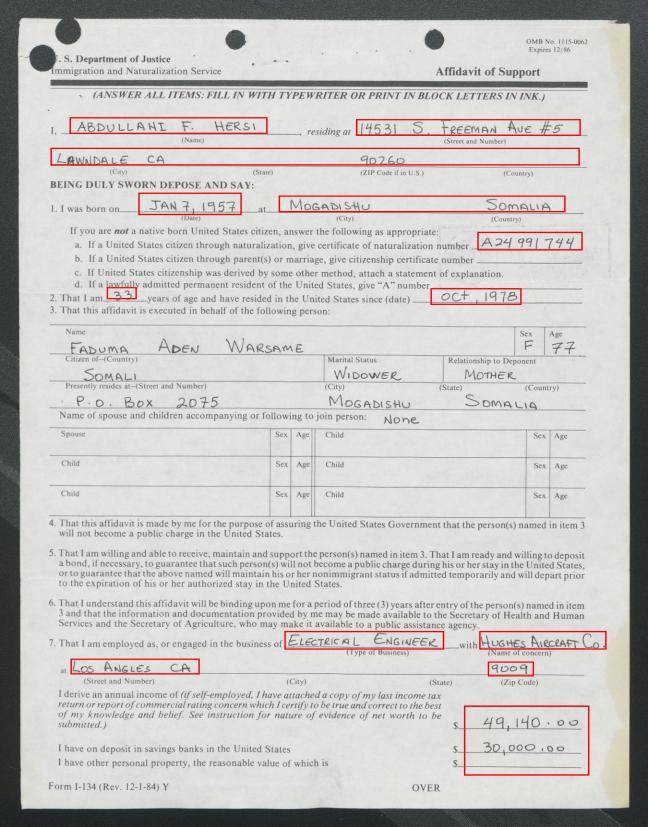 OMB No. 1115-0062
Expires 12/86
. S. Department of Justice
Immigration and Naturalization Service
Affidavit of Support
(ANSWER ALL ITEMS: FILL IN WITH TYPEWRITER OR PRINT IN BLOCK LETTERS IN INK.)
I, ABDULLAHI F. HERSI , residing at 14531 S. FREEMAN AVE #5
(Name) (Street and Number)
LAWNDALE CA 90260
(City) (State) (ZIP Code if in U.S.) (Country)
BEING DULY SWORN DEPOSE AND SAY:
1. I was born on JAN 7, 1957 at MOGADISHU SOMALIA
(Date) (City) (Country)
If you are not a native born United States citizen, answer the following as appropriate:
a. If a United States citizen through naturalization, give certificate of naturalization number A24 991 744
b. If a United States citizen through parent(s) or marriage, give citizenship certificate number
c. If United States citizenship was derived by some other method, attach a statement of explanation.
d. If a lawfully admitted permanent resident of the United States, give "A" number
2. That I am 33 years of age and have resided in the United States since (date) OCT, 1978
3. That this affidavit is executed in behalf of the following person:
Name Sex Age
FADUMA ADEN WARSAME F 77
Citizen of—(Country) Marital Status Relationship to Deponent
SOMALI WIDOWER MOTHER
Presently resides at—(Street and Number) (City) (State) (Country)
P.O. BOX 2075 MOGADISHU SOMALIA
Name of spouse and children accompanying or following to join person: None
Spouse Sex Age Child Sex Age
Child Sex Age Child Sex Age
Child Sex Age Child Sex Age
4. That this affidavit is made by me for the purpose of assuring the United States Government that the person(s) named in item 3
will not become a public charge in the United States.
5. That I am willing and able to receive, maintain and support the person(s) named in item 3. That I am ready and willing to deposit
a bond, if necessary, to guarantee that such person(s) will not become a public charge during his or her stay in the United States,
or to guarantee that the above named will maintain his or her nonimmigrant status if admitted temporarily and will depart prior
to the expiration of his or her authorized stay in the United States.
6. That I understand this affidavit will be binding upon me for a period of three (3) years after entry of the person(s) named in item
3 and that the information and documentation provided by me may be made available to the Secretary of Health and Human
Services and the Secretary of Agriculture, who may make it available to a public assistance agency.
7. That I am employed as, or engaged in the business of ELECTRICAL ENGINEER with HUGHES AIRCRAFT CO.
(Type of Business) (Name of concern)
at LOS ANGLES CA 9009
(Street and Number) (City) (State) (Zip Code)
I derive an annual income of (if self-employed, I have attached a copy of my last income tax
return or report of commercial rating concern which I certify to be true and correct to the best
of my knowledge and belief. See instruction for nature of evidence of net worth to be
submitted.) $ 49,140.00
I have on deposit in savings banks in the United States $ 30,000.00
I have other personal property, the reasonable value of which is $
Form I-134 (Rev. 12-1-84) Y OVER